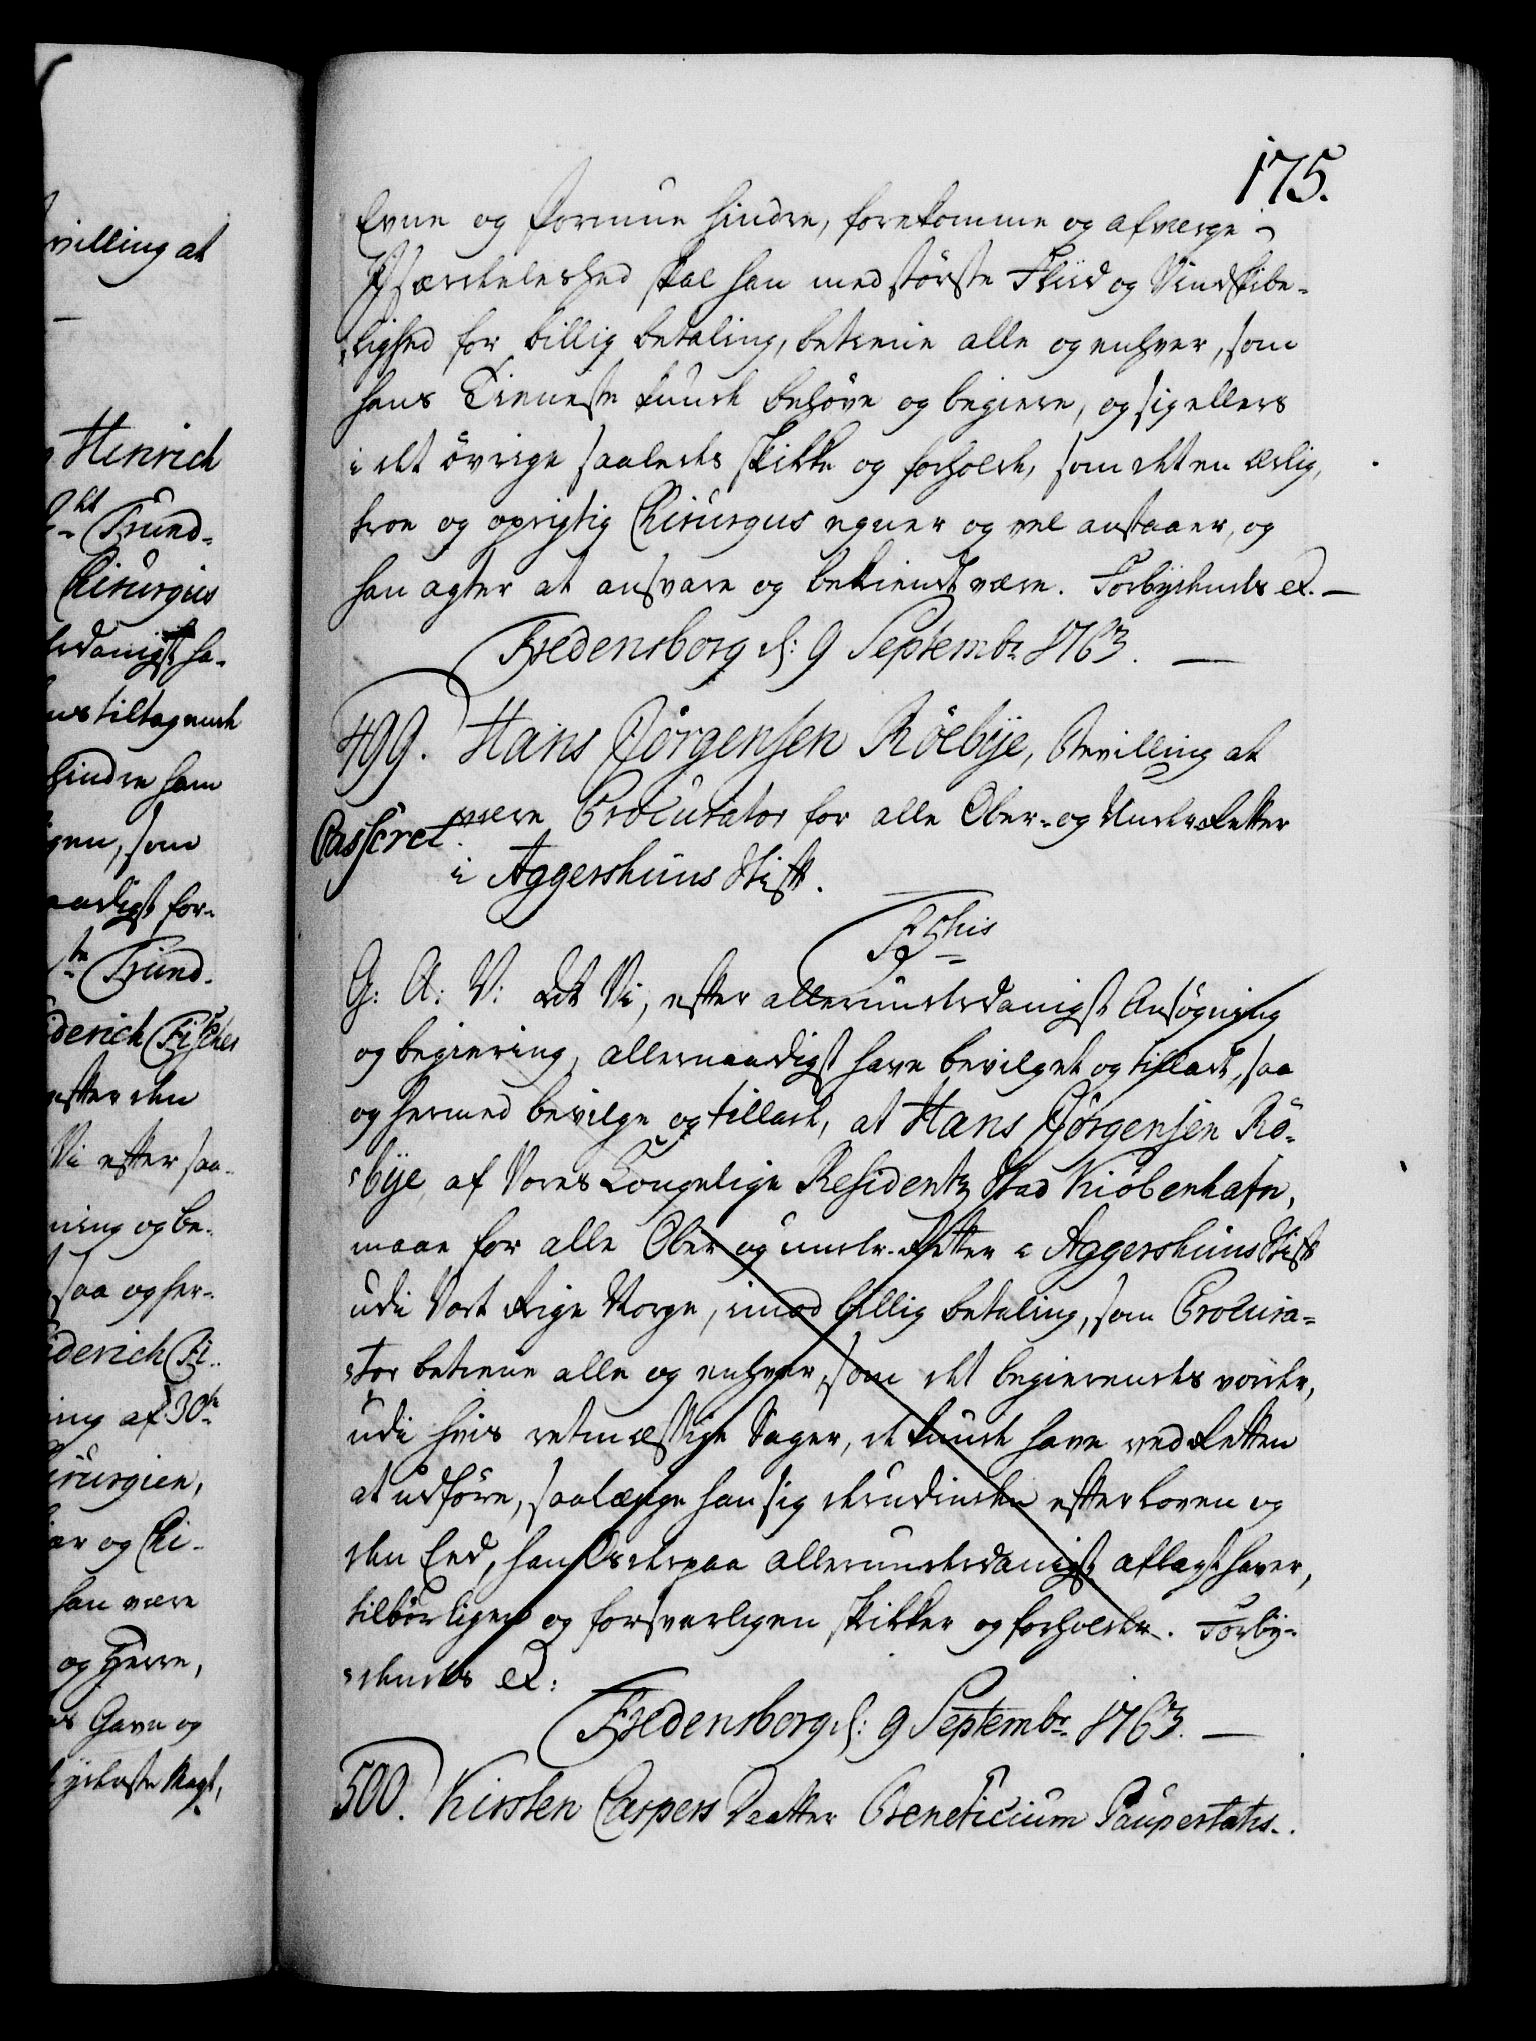 175.
Evne og Formue hindre, forekomme og afværge i
Særdeleshed skal han med største Fliid og Vindskibe-
lighed for billig betaling, betiene alle og enhver, som
hans Tieneste kunde behöve og begiere, og sig ellers
i det övrige saaledes skikke og forholde, som det en ærlig,
troe og oprigtig Chirurgus egner og vel anstaaer, og
han agter at ansvare og bekiendt være. Forbydendes &.
Fredensborg d: 9 Septembr 1763.
499. Hans Jörgensen Röebÿe, Bevilling at
være Procurator for alle Ober- og Under-Retter
Casseret.
i Aggershuus Stift.
F 5this
G: A: V: At Vi, efter allerunderdanigst Ansögning
og begiering, allernaadigst have bevilget og tilladt, saa
og hermed bevilge og tillade, at Hans Jörgensen Rö-
bÿe, af Vores Kongelige Residentz Stad Kiöbenhafn,
maae for alle Ober og under-Retter i Aggershuus Stift
udi Vort Rige Norge, imod billig betaling, som Procura-
tor betiene alle og enhver, som det begierendes vorder,
udi hvis retmæssige Sager, de kunde have ved Retten
at udföre, saalænge han sig derudinden efter Loven og
den Eed, han derpaa allerunderdanigst aflagt haver,
tilbörligen og forsvarligen skikker og forholder. Forby-
dendes &:
Fredensborg d: 9 Septembr 1763.
500. Kirsten Caspers Daatter Beneficium Paupertatis.
villing at
Henrich
Frund-
Chirurgus
derdanigst ha-
tiltagende
hindre ham
gen, som
naadigst for-
Frund-
iderich Fischer
efter den
Vi efter saa-
ning og be-
saa og her-
iderich Fi-
ing af 30te
irurgien,
er og Chi-
han være
og Herre,
Gavn og
yderste Magt,